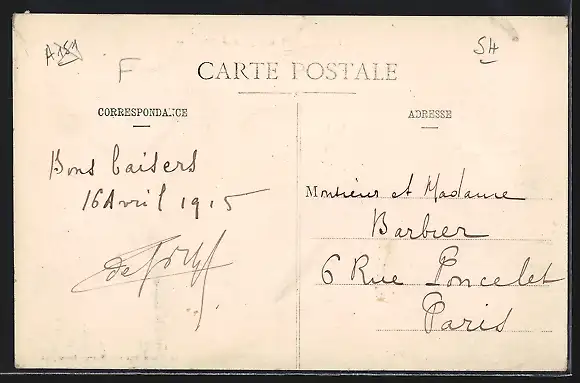 A151
F
54
CARTE POSTALE
CORRESPONDANCE
ADRESSE
Bons baisers
16 Avril 1915
Monsieur et Madame
Barbier
6 Rue Poncelet
Paris